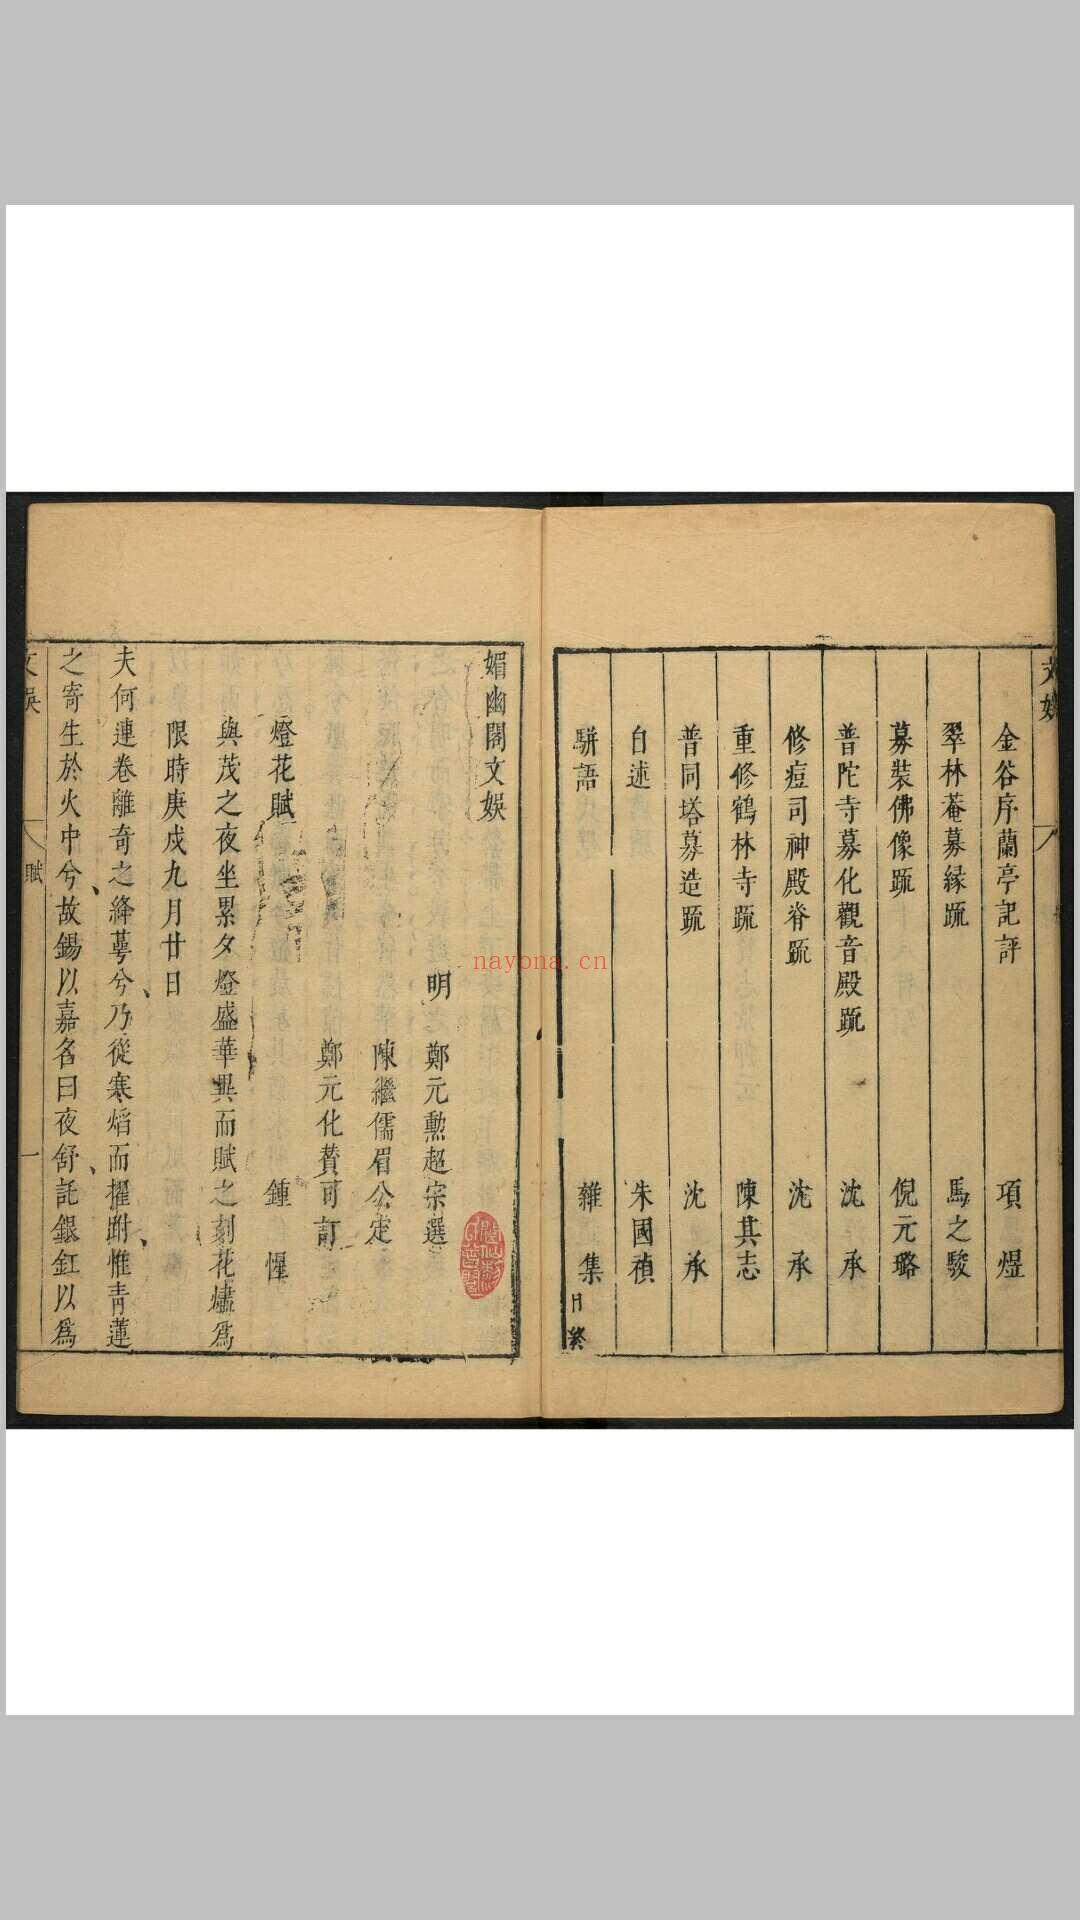 文娛
金谷序蘭亭記評 項煜
翠林菴募緣疏 馬之駿
募裝佛像疏 倪元璐
普陀寺募化觀音殿疏 沈承
修痘司神殿脊疏 沈承
重修鶴林寺疏 陳其志
普同塔募造疏 沈承
自述 朱國禎
駢語 雜集
目終
媚幽閣文娛
明 鄭元勳超宗選
陳繼儒眉公定
鄭元化贊可訂
燈花賦 鍾惺
與茂之夜坐累夕燈盛華異而賦之刻花燼爲
限時庚戌九月廿日
夫何連卷離奇之絳萼兮、乃從寒焰而擢跗惟青蓮
之寄生於火中兮、故錫以嘉名曰夜舒、託銀釭以爲
文娛 賦 一
nayona.cn